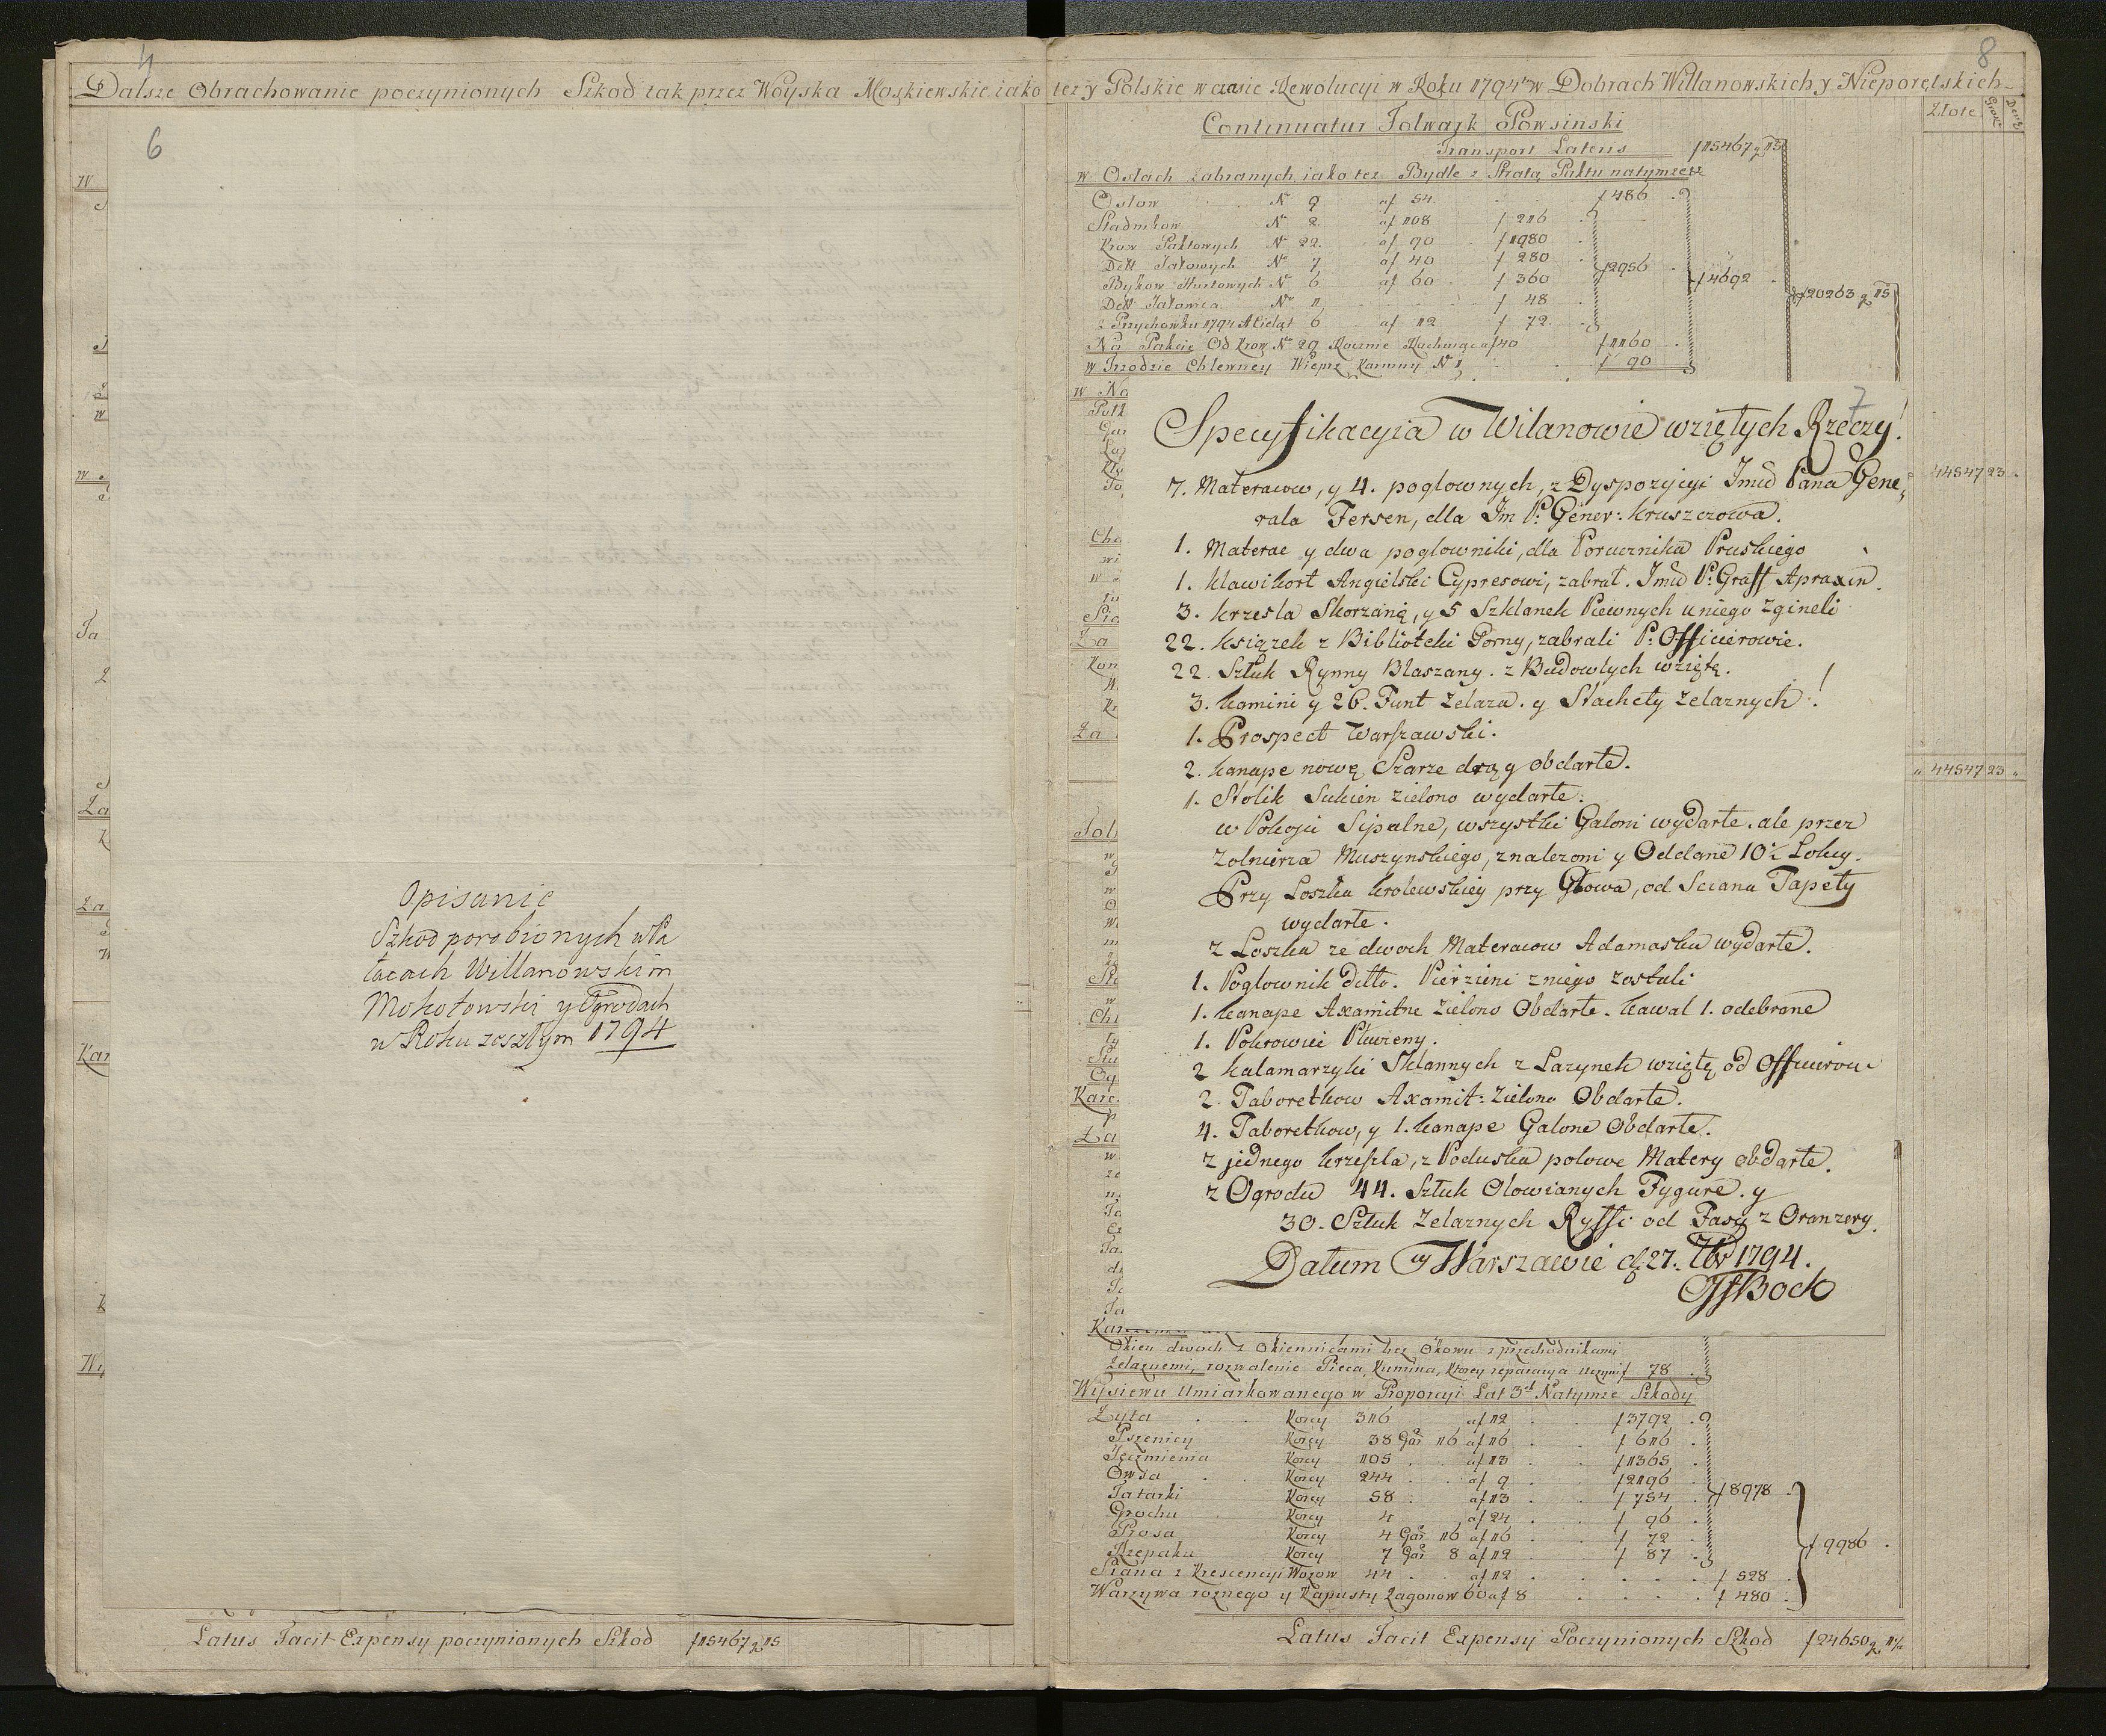 4
8
Dalsze Obrachowanie poczynionych Szkod tak przez Woyska Moskiewskie iako tez y Polskie w czasie Rewolucyi w Roku 1794 w Dobrach Willanowskich y Nieporętskich
6
Opisanie
Szkod porobionych w Pa
łacach Willanowskim
Mokotowski y Ogrodach
w Roku zeszłym 1794
Latus Facit Expensy poczynionych Szkod f 15467 g 15
Złote
Continuatur Folwark Powsinski
Transport Lateris f 15467 g 15
w Osłach zabranych iako tez Bydle z Stratą Paktu natymze
Osłow No 9 af 54 f 486
Stadnikow No 2 af 108 f 216
Krow Paktowych No 22 af 90 f 1980
Dett Jałowych No 7 af 40 f 280 f 2956
Bykow Hurtowych No 6 af 60 f 360 f 4692
Dett Jałowica No 1 f 48 f 20263 g 15
z Przychowku 1794 Cieląt 6 af 12 f 72
Na Pakcie Od Krow No 29 Rocznie Rachuiąc af 40 f 1160
w Trzodzie Chlewney Wieprz Karmny No 1 f 90
7
Specyfikacyia w Wilanowie wziętych Rzeczy!
7. Materacow, y 4. poglownych, z Dyspozycyi Jmći Pana Gene,
rala Fersen, dla Jm P: Gener: Kruszczowa.
1. Materac y dwa poglowniki, dla Porucznika Pruskiego
1. Klawikort Angielski Cypresowi, zabrał. Jmći P: Graff Apraxin.
3. krzesla Skorzaną, y 5 Szklanek Piewnych u niego zgineli
22. książek z Biblioteki Gorny, zabrali P: Officierowie.
22. Sztuk Rynny Blaszany. z Budowlych wziętę.
3. Kamini y 26. Funt Zelaza. y Stachety Zelaznych!
1. Prospect Warszawski.
2. kanape nowę Szarze drą y obdarte.
1. Stolik Sukien zielono wydarte.
w Pokoju Sipalne, wszystki Galoni wydarte. ale przez
Zolnierza Muszynskiego, znalezoni y Oddane 10½ Lokcy.
Przy Loszka krolewskiey przy Głowa, od Sciana Tapety
wydarte.
z Loszka ze dwoch Materacow Adamasku wydarte.
1. Poglownik detto. Pierzini z niego zostali
1. Kanape Axamitne Zielono Obdarte. kawal 1. odebrane
1. Pokrowiec Płucieny.
2 kalamarzyki Sklannych z Lazynek wziętę od Officirow
2. Taboretkow Axamit: Zielono Obdarte.
4. Taboretkow, y 1. kanape Galone Obdarte.
z jednego krzeszla, z Poduszka polowe Matery obdarte.
z Ogrodu 44. Sztuk Olowianych Fygure. y
30. Sztuk Zelaznych Ryffi od Fasy z Oranzery.
Datum w Warszawie d: 27. 7br 1794.
Bock
44547 23
44547 23
Okien dwoch z Okiennicami bez Okowu z przechodnikami
Zelaznemi, rozwalenie Pieca, Kumina, Ktorey reparacya uczyni f 78
Wysiewu Umiarkowanego w Proporcyi Lat 3ch Natymze Szkody
Zyta Korcy 316 af 12 f 3792
Pszenicy Korcy 38 Gar 16 af 16 f 616
Jęczmienia Korcy 105 af 13 f 1365
Owsa Korcy 244 af 9 f 2196
Tatarki Korcy 58 af 13 f 754 f 8978
Grochu Korcy 4 af 24 f 96
Prosa Korcy 4 Gar 16 af 16 f 72
Rzepaku Korcy 7 Gar 8 af 12 f 87 f 9986
Siana z Krescencyi Wozow 44 af 12 f 528
Warzywa roznego y Kapusty Zagonow 60 af 8 f 480
Latus Facit Expensy Poczynionych Szkod f 24650 g 11½